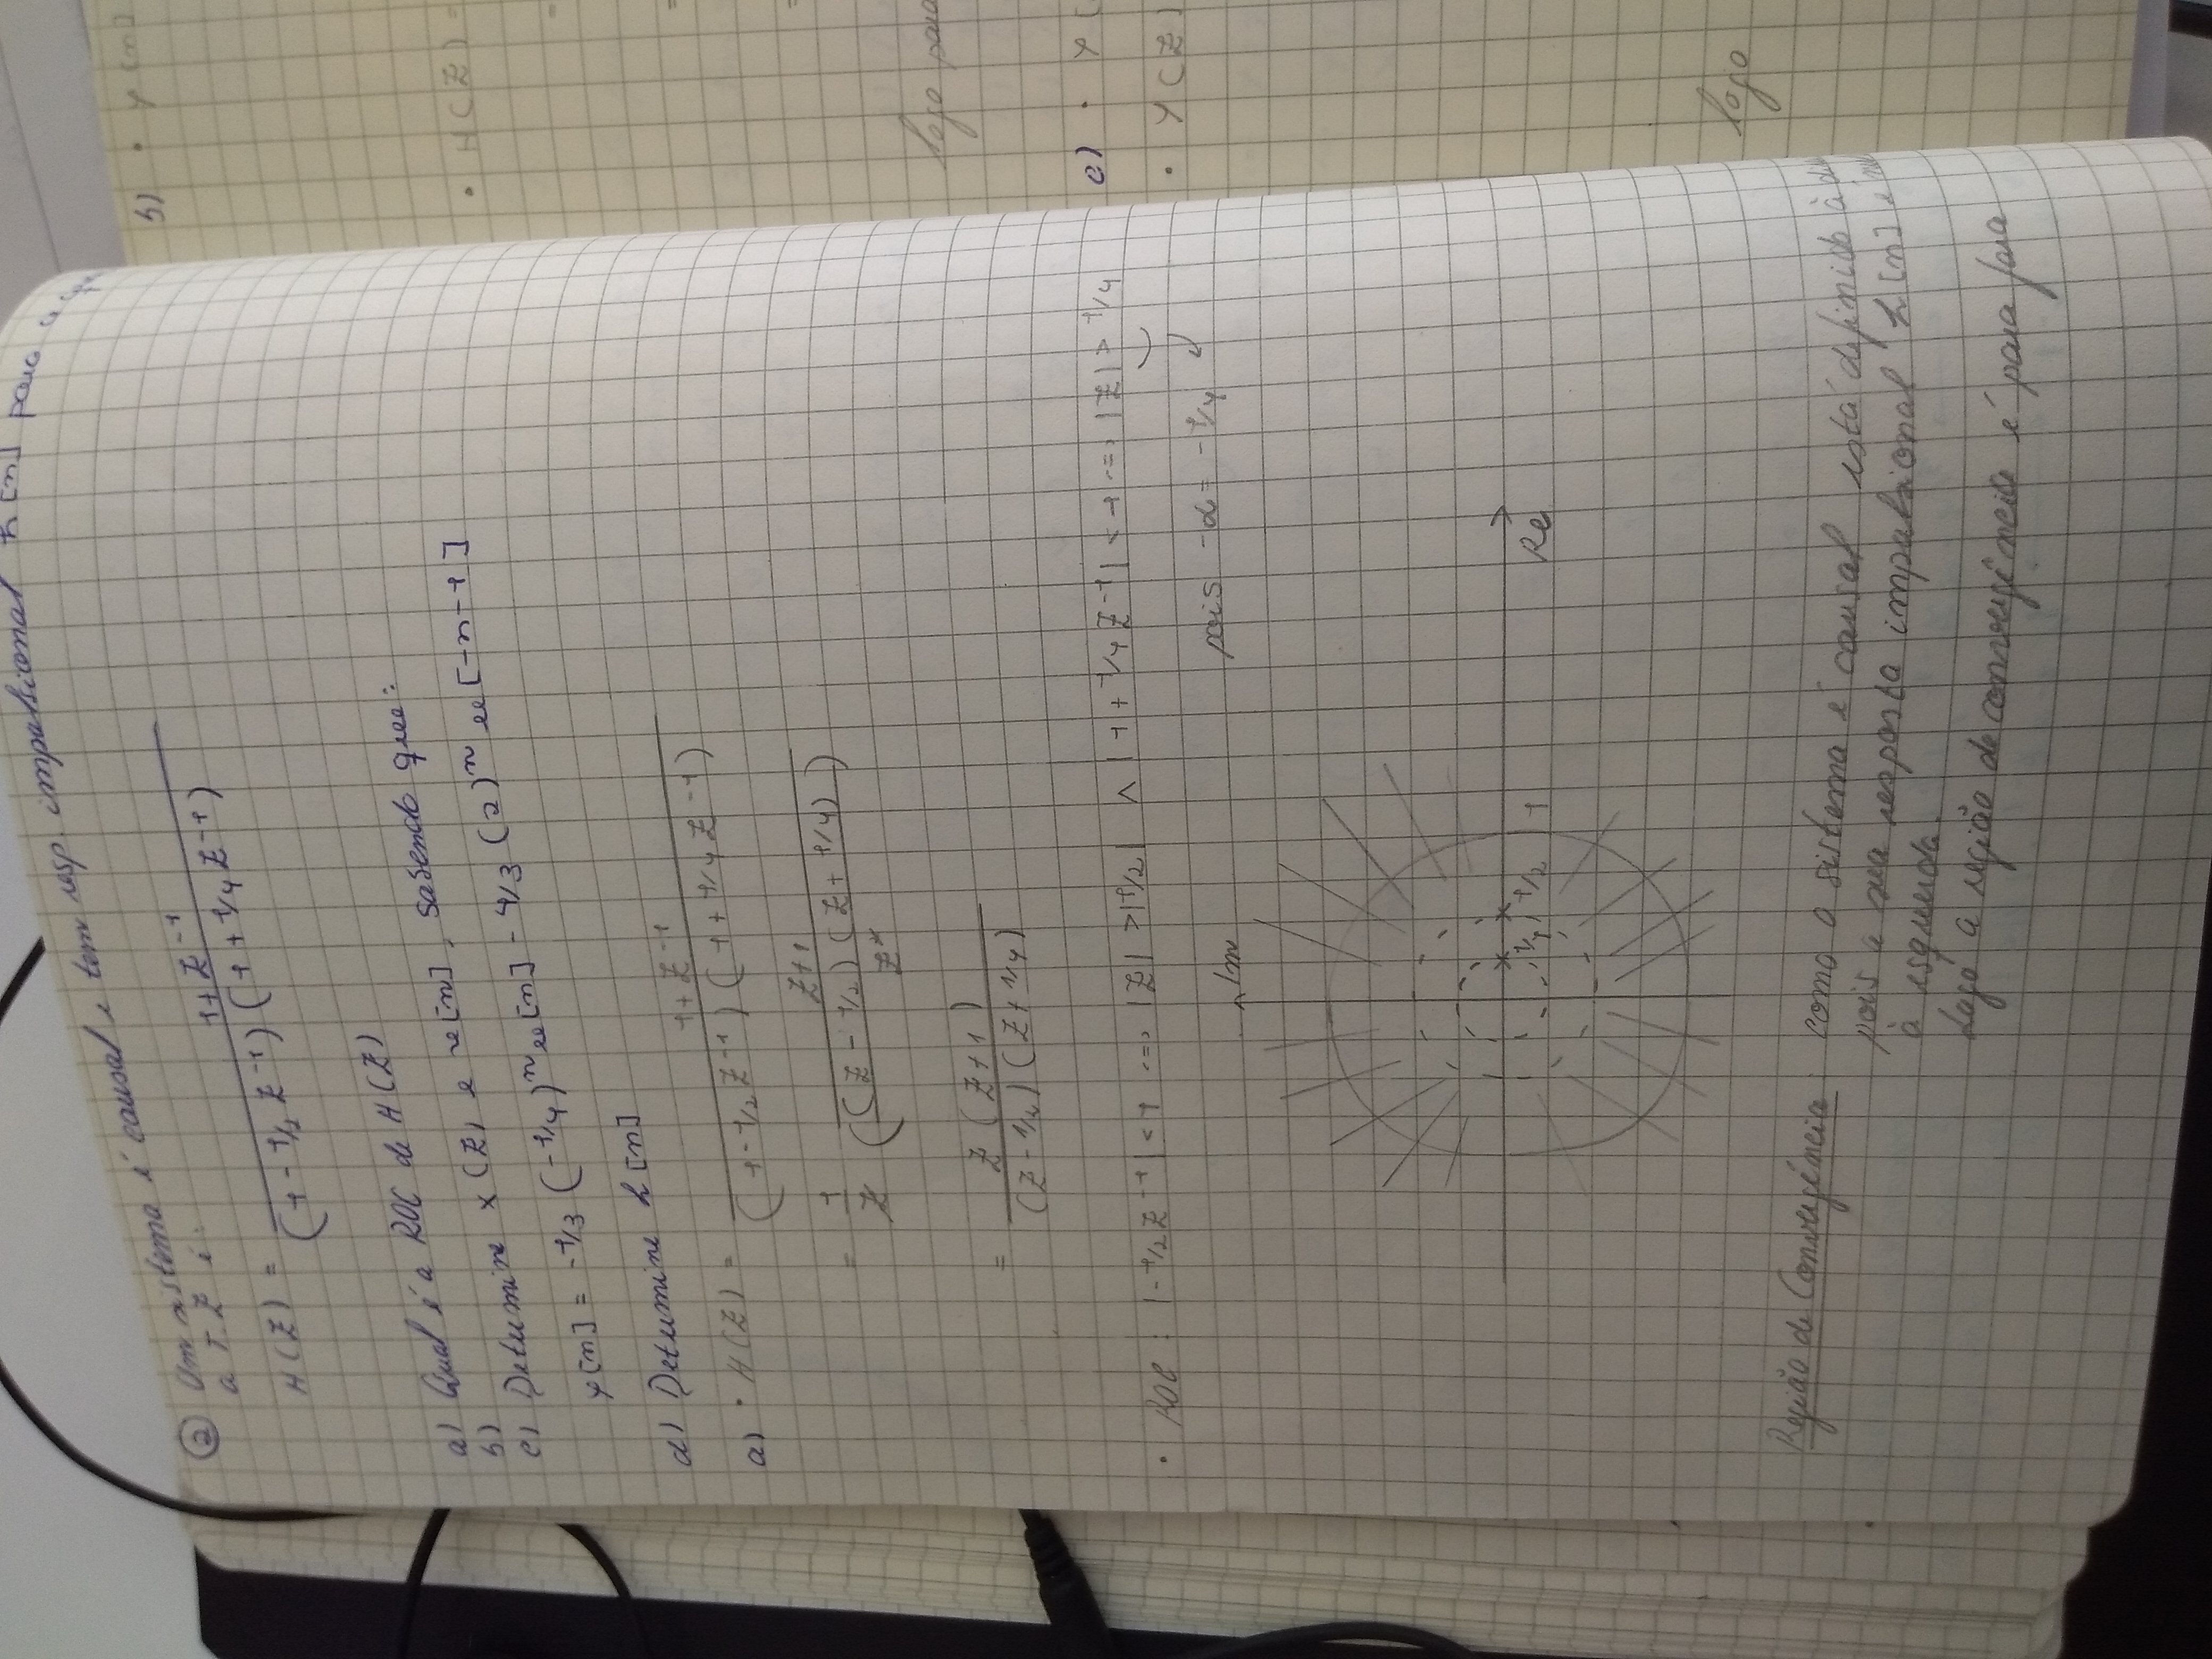 ② Um sistema é causal e tem resp. impulsional h[n] para a
a T.Z é:
H(Z) = 1+Z^-1 / (1 - 1/2 Z^-1) (1 + 1/4 Z^-1)
a) Qual é a ROC de H(Z)
b)
c) Determine X(Z) e x[n], sabendo que:
y[n] = -1/3 (-1/4)^n u[n] - 4/3 (2)^n u[-n-1]
d) Determine h[n]
a) • H(Z) = 1+Z^-1 / (1 - 1/2 Z^-1) (1 + 1/4 Z^-1)
= 1/Z (Z+1 / ((Z - 1/2) (Z + 1/4) / Z^2))
= Z (Z+1) / (Z - 1/2) (Z + 1/4)
• ROC : |-1/2 Z^-1| < 1 <=> |Z| > |1/2| ∧ |1 + 1/4 Z^-1| < 1 <=> |Z| > 1/4
pois -α = -1/4
Im
1/4 1/2 1
Re
Região de Convergência : como o sistema é causal está definido à
pois a sua resposta impulsional h[n] é
à esquerda.
Logo a região de convergência é para fora
b) • Y[n]
• H(Z) =
=
=
logo para
c) • Y(
• Y(Z)
logo